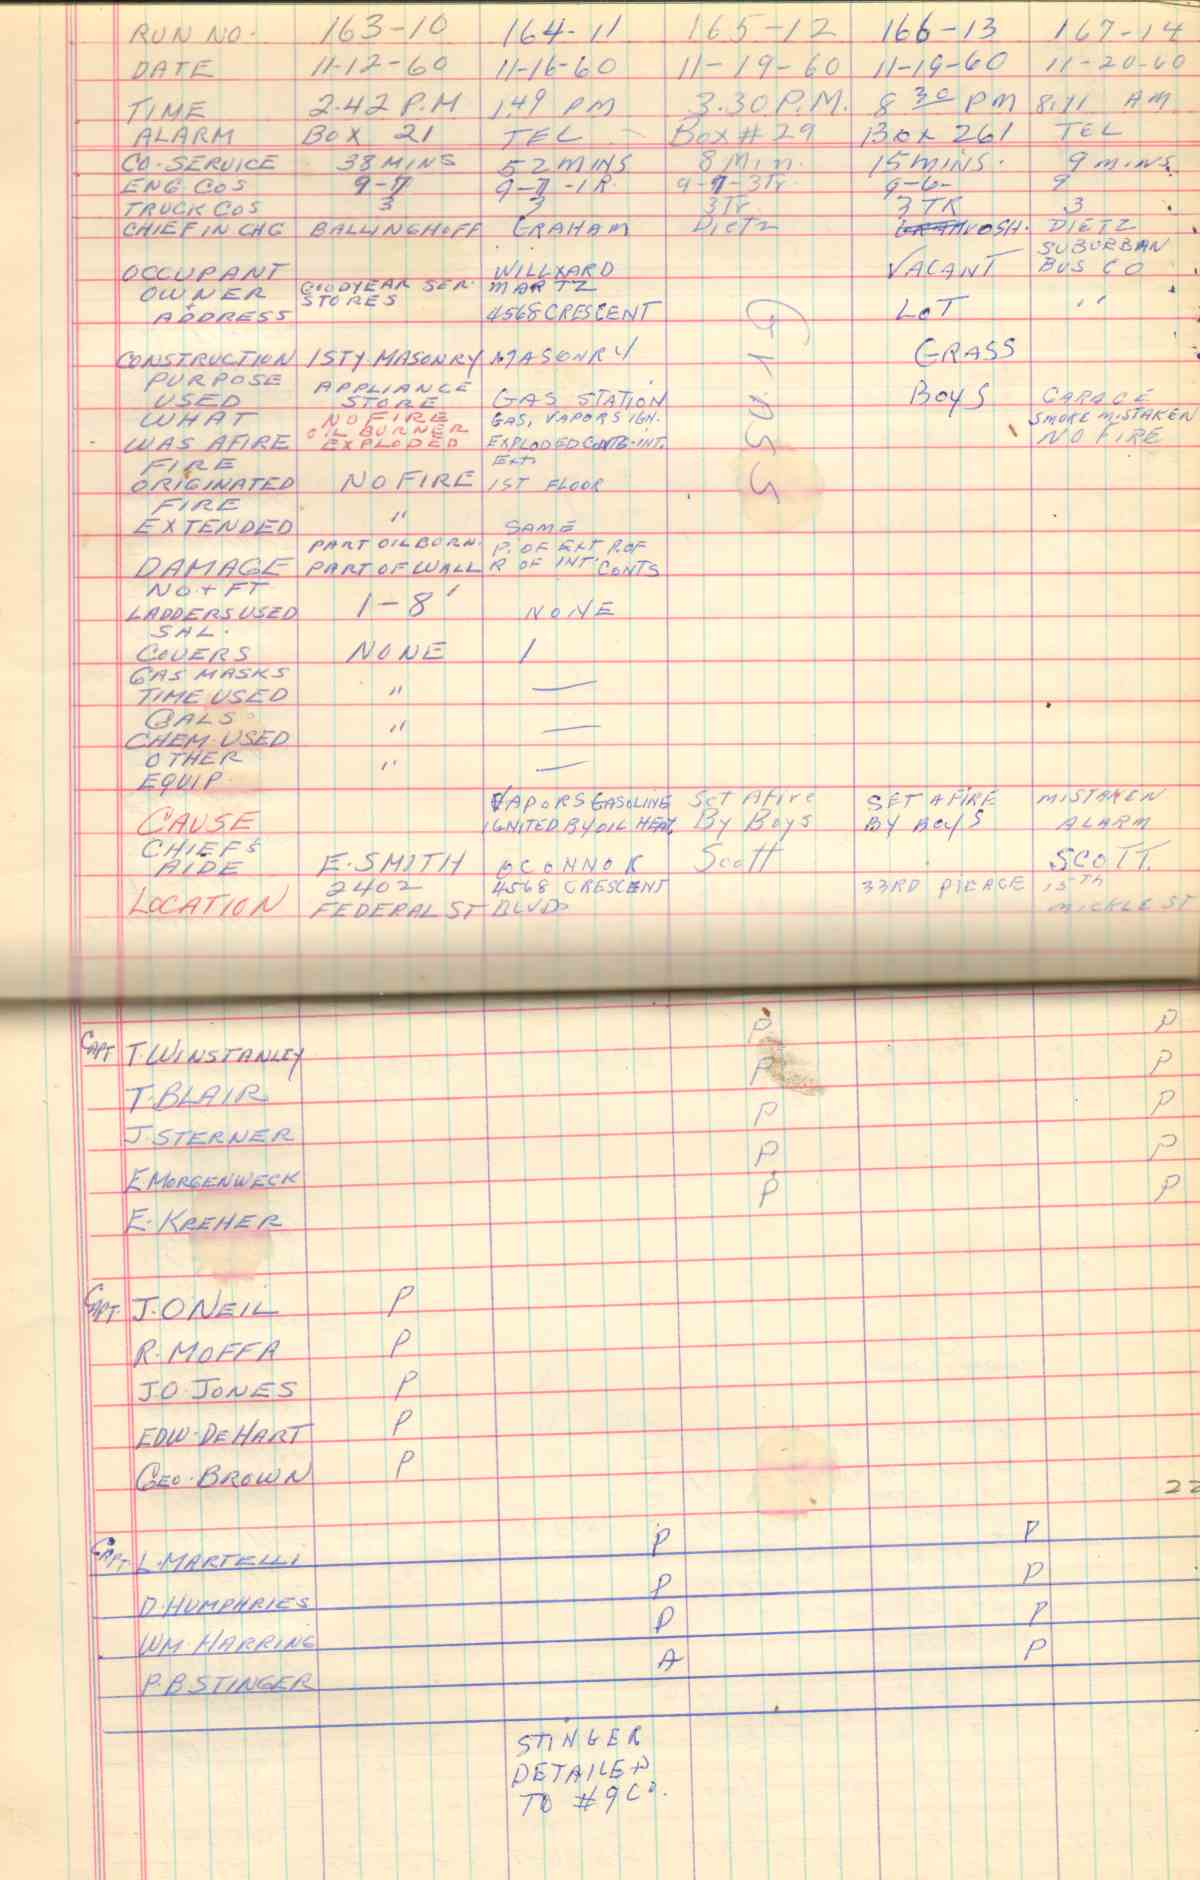 RUN NO. 163-10 164-11 165-12 166-13 167-14
DATE 11-12-60 11-16-60 11-19-60 11-19-60 11-20-60
TIME 2.42 P.M 1.49 PM 3.30 P.M. 8 30 PM 8:11 AM
ALARM BOX 21 TEL Box # 29 Box 261 TEL
CO. SERVICE 38 MINS 52 MINS 8 Min. 15 MINS. 9 MINS.
ENG. COS 9-7 9-7-1R. 9-7-3Tr. 9-6- 9
TRUCK COS 3 3 3Tr. 3 TR 3
CHIEF IN CHG BALLINGHOFF GRAHAM Dietz VOSH. DIETZ
OCCUPANT WILLXARD VACANT SUBURBAN BUS CO
OWNER GOODYEAR SER. STORES MARTZ
ADDRESS 4568 CRESCENT LOT "
GRASS
CONSTRUCTION 1STY. MASONRY MASONRY GRASS
PURPOSE USED APPLIANCE STORE GAS STATION BOYS GARAGE
WHAT WAS AFIRE NO FIRE OIL BURNER EXPLODED GAS, VAPORS IGN. EXPLODED CONTS-INT. Ext. SMOKE MISTAKEN NO FIRE
FIRE ORIGINATED NO FIRE 1ST FLOOR
FIRE EXTENDED " SAME
DAMAGE PART OIL BURN. PART OF WALL P. OF EXT P. OF R OF INT. CONTS
NO + FT LADDERS USED 1-8' NONE
SAL. COVERS NONE 1
GAS MASKS TIME USED " —
GALS. CHEM. USED " —
OTHER EQUIP. " —
CAUSE VAPORS GASOLINE IGNITED BY OIL HEAT. Set Afire By Boys SET AFIRE BY BOYS MISTAKEN ALARM
CHIEFS AIDE E. SMITH OCONNOR Scott SCOTT.
LOCATION 2402 FEDERAL ST 4568 CRESCENT BLVD 33RD 15TH MICKLE ST
CAPT T. WINSTANLEY P P
T. BLAIR P P
J. STERNER P P
E MORGENWECK P P
E. KREHER P P
CAPT. J. ONEIL P
R. MOFFA P
JO. JONES P
EDW. DEHART P
GEO. BROWN P
22
CAPT. L. MARTELLI P P
D. HUMPHRIES P P
WM. HARRING P P
P. B STINGER A P
STINGER
DETAILED
TO #9 CO.